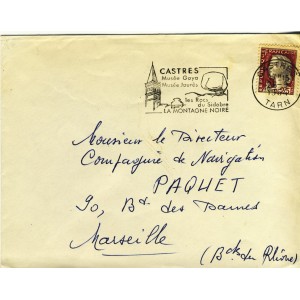 CASTRES
Musée Goya
Musée Jaurès
Ses Rocs
du Sidobre
LA MONTAGNE NOIRE
TARN
Monsieur le Directeur
Compagnie de Navigation
PAQUET
90, Bd. des Dames
Marseille
(Bch. du Rhône)